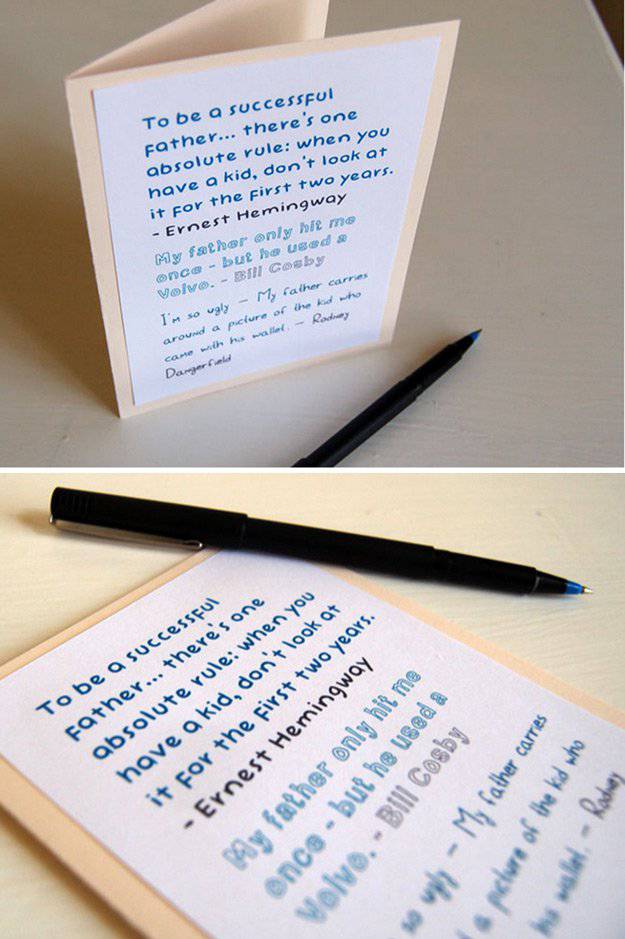 To be a successful
father... there's one
absolute rule: when you
have a kid, don't look at
it for the first two years.
- Ernest Hemingway
My father only hit me
once - but he used a
Volvo. - Bill Cosby
I'm so ugly – My father carries
around a picture of the kid who
came with his wallet. – Rodney
Dangerfield
To be a successful
father... there's one
absolute rule: when you
have a kid, don't look at
it for the first two years.
- Ernest Hemingway
My father only hit me
once - but he used a
Volvo. - Bill Cosby
so ugly – My father carries
a picture of the kid who
his wallet. – Rodney